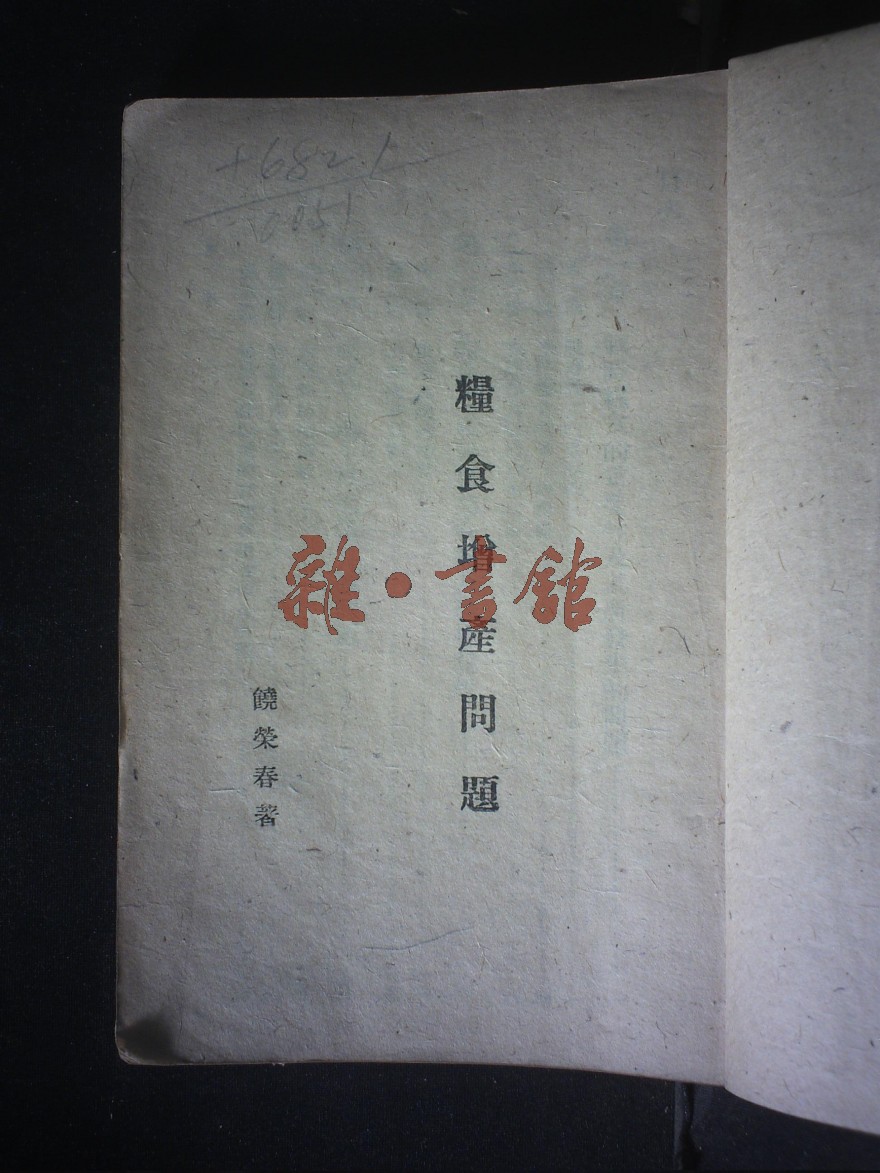 +682.1
6051
糧食增產問題
饒榮春著
雜·書館